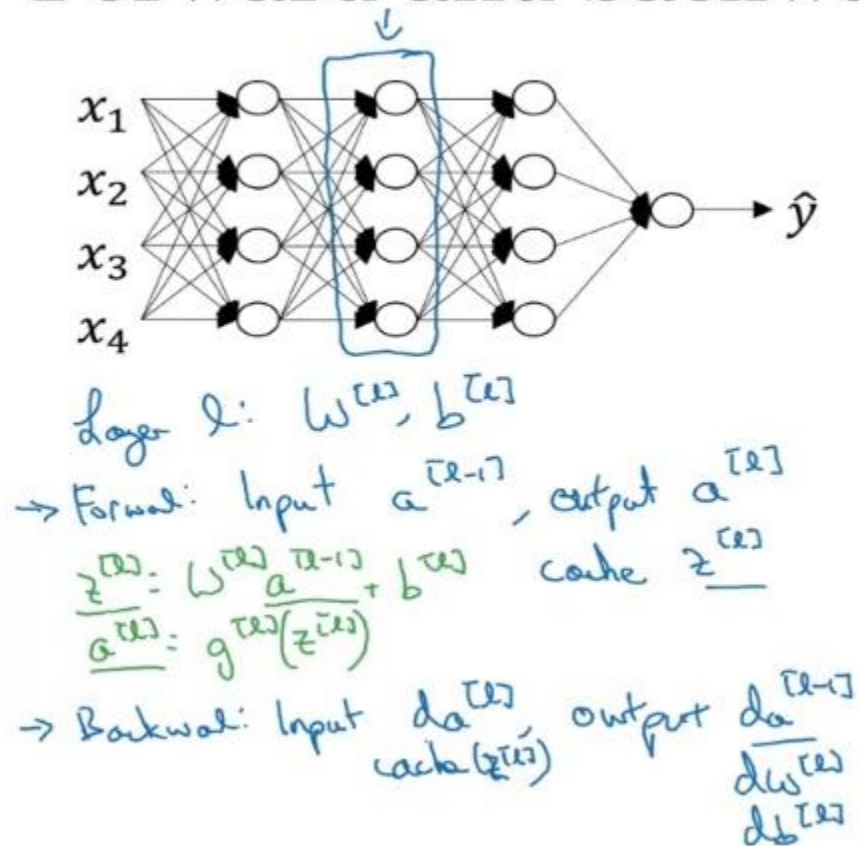 x₁
x₂
x₃
x₄
ŷ
Layer l: W^[l], b^[l]
→ Forward: Input a^[l-1], output a^[l]
z^[l] = W^[l] a^[l-1] + b^[l] cache z^[l]
a^[l] = g^[l](z^[l])
→ Backward: Input da^[l], output da^[l-1]
cache(z^[l]) dW^[l]
db^[l]